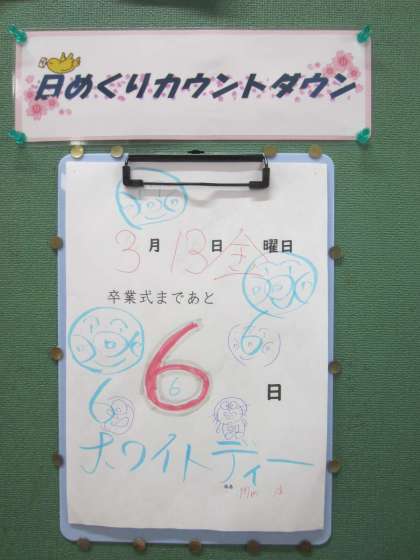 日めくりカウントダウン
3月13日金曜日
卒業式まであと
6
6
6日
6
6
ホワイトディー